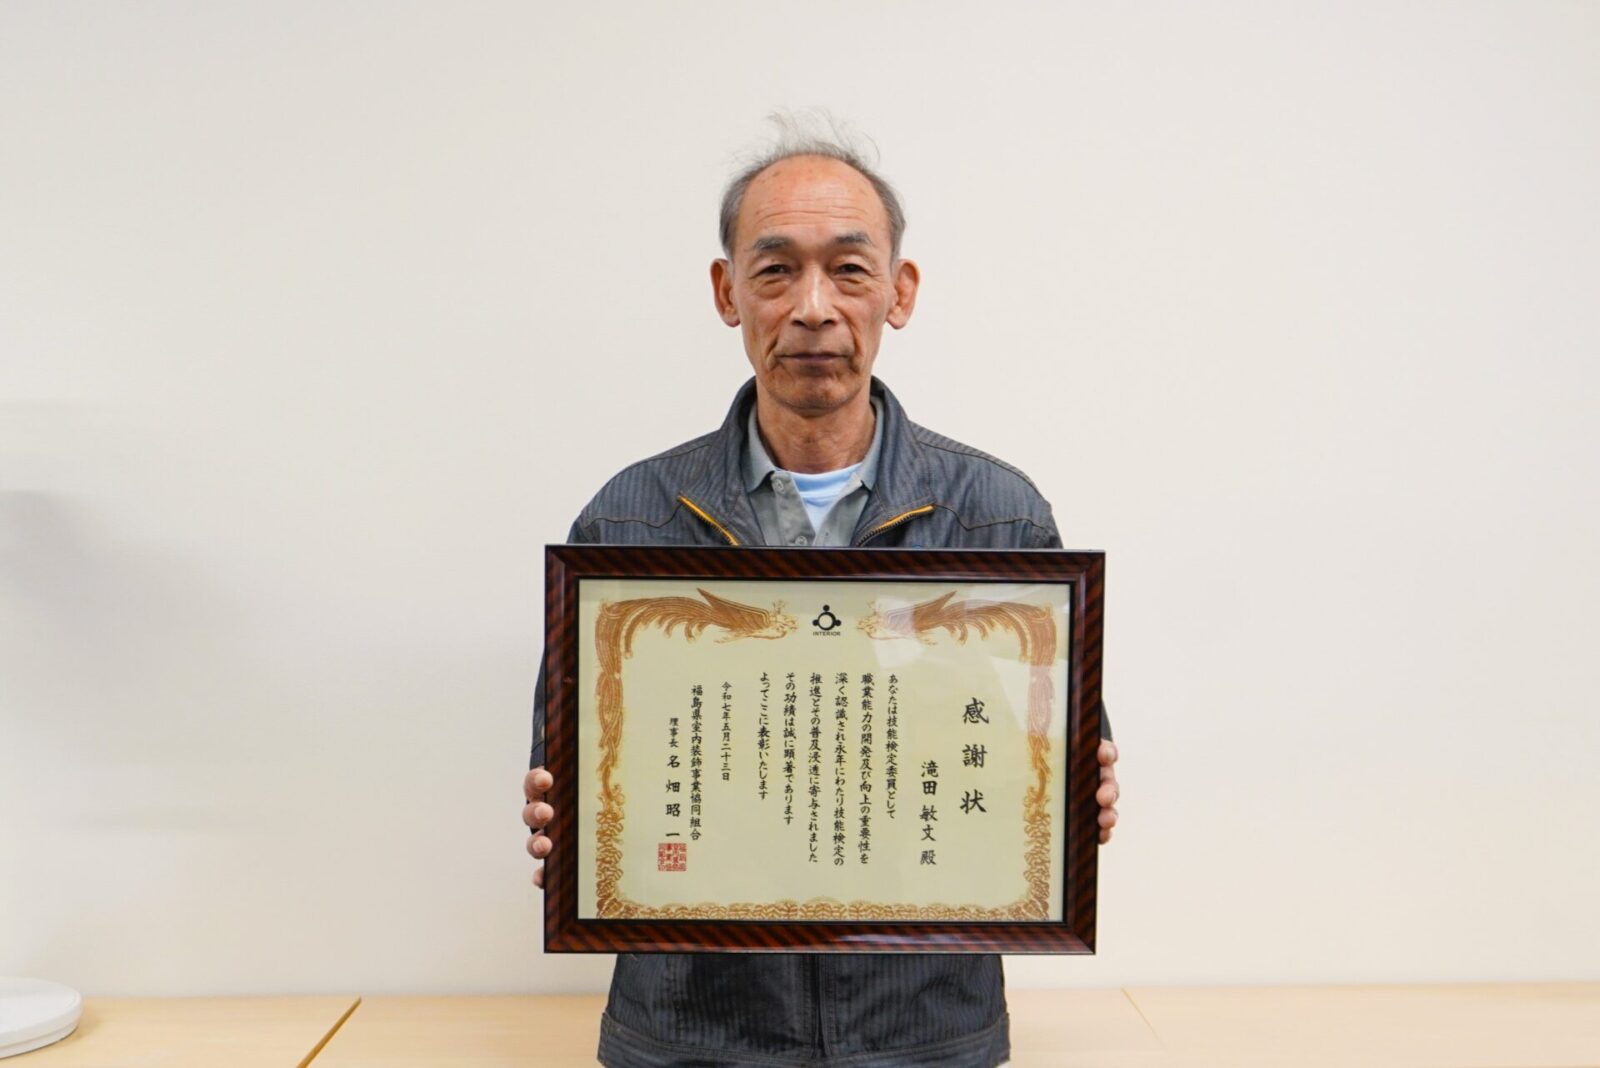 INTERIOR
感謝状
滝田敏文殿
あなたは技能検定委員として
職業能力の開発及び向上の重要性を
深く認識され永年にわたり技能検定の
推進とその普及浸透に寄与されました
その功績は誠に顕著であります
よってここに表彰いたします
令和七年五月二十三日
福島県室内装飾事業協同組合
理事長 名畑昭一